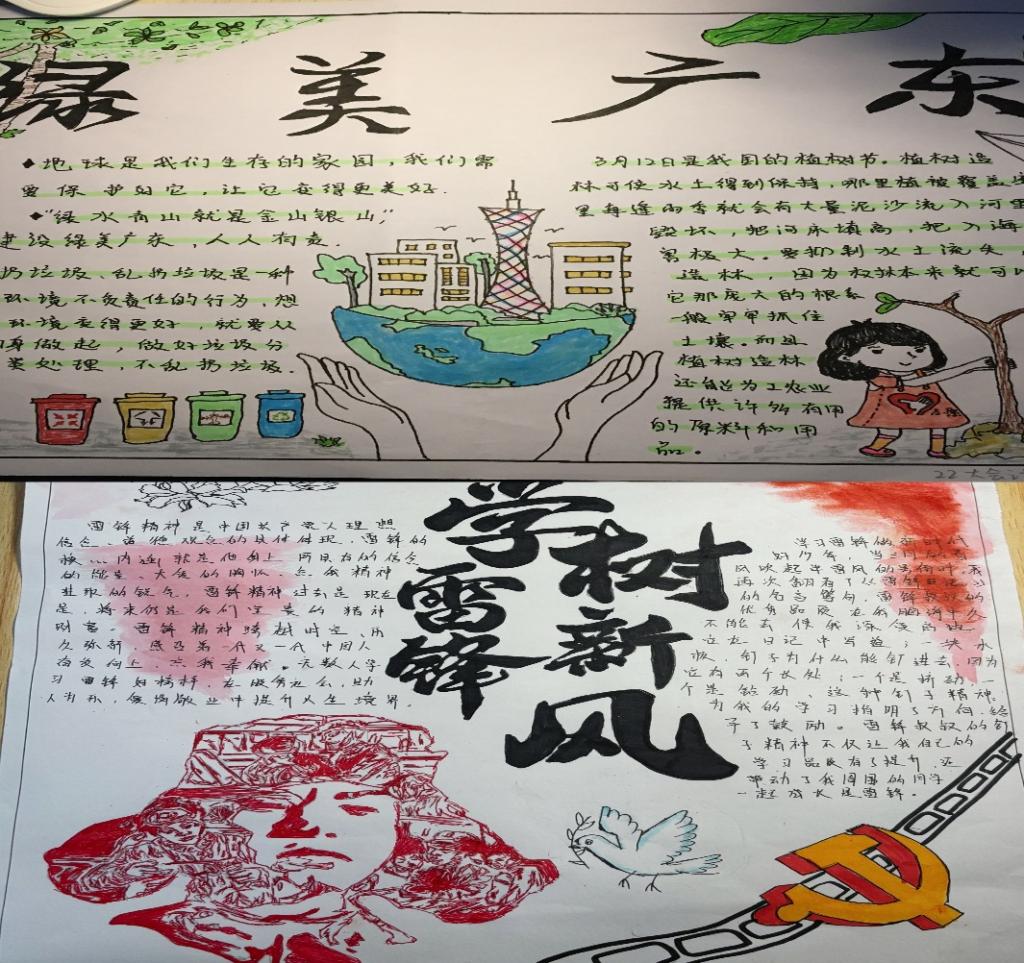 绿美广东
◆地球是我们生存的家园,我们需
要保护好它,让它变得更美好.
◆"绿水青山就是金山银山,"
建设绿美广东,人人有责.
扔垃圾、乱扔垃圾是一种
环境不负责任的行为,想
环境变得更好,就要从
做起,做好垃圾分
类处理,不乱扔垃圾.
3月12日是我国的植树节。植树造
林可使水土得到保持,哪里植被覆盖
里每逢雨季就会有大量泥沙流入河里
毁坏,把河床填高,把入海
害极大。要抑制水土流失
造林,因为树林本来就可以
它那庞大的根系
一般牢牢抓住
土壤。而且
植树造林
还能为工农业
提供许多有用
的原料和用
品。
学雷锋
树新风
雷锋精神是中国共产党人理想
信念、道德观念的具体体现,雷锋的
的能量、大爱的胸怀、忘我精神
进取的锐气,雷锋精神过去是,现在
是,将来仍是我们宝贵的精神
财富。雷锋精神跨越时空、历
久弥新,感召着一代又一代中国人
无数人学
习雷锋好榜样,在服务他人、助
人为乐,爱岗敬业中提升人生境界.
学习雷锋的
再次翻看了从雷锋日记
的句句箴句,雷锋叔叔的
优秀品质在我脑海中久
不能去,使我深受
在日记中写道:一块木
板,钉子为什么能钉进去,因为
它有两个长处:一个是挤劲,一
个是钻劲、这种钉子精神,
为我的学习指明了方向,给
予了鼓励。雷锋叔叔的钉
子精神不仅让我自己的
学习品质有了提升,还
带动了我周围的同学
一起成长是雷锋。